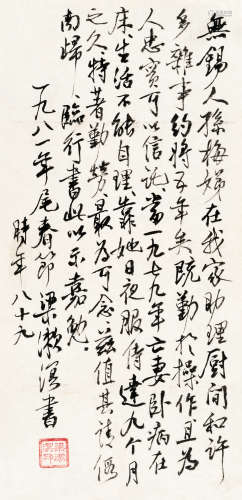 無錫人孫梅娣在我家助理廚間和許
多雜事約將五年矣既勤於操作且為
人忠實可以信託當一九七九年亡妻卧病在
床生活不能自理靠她日夜服侍達九個月
之久特著勤勞最為可念茲值其請假
南歸臨行書此以示嘉勉
一九八一年尾春節 梁漱溟書
時年八十九